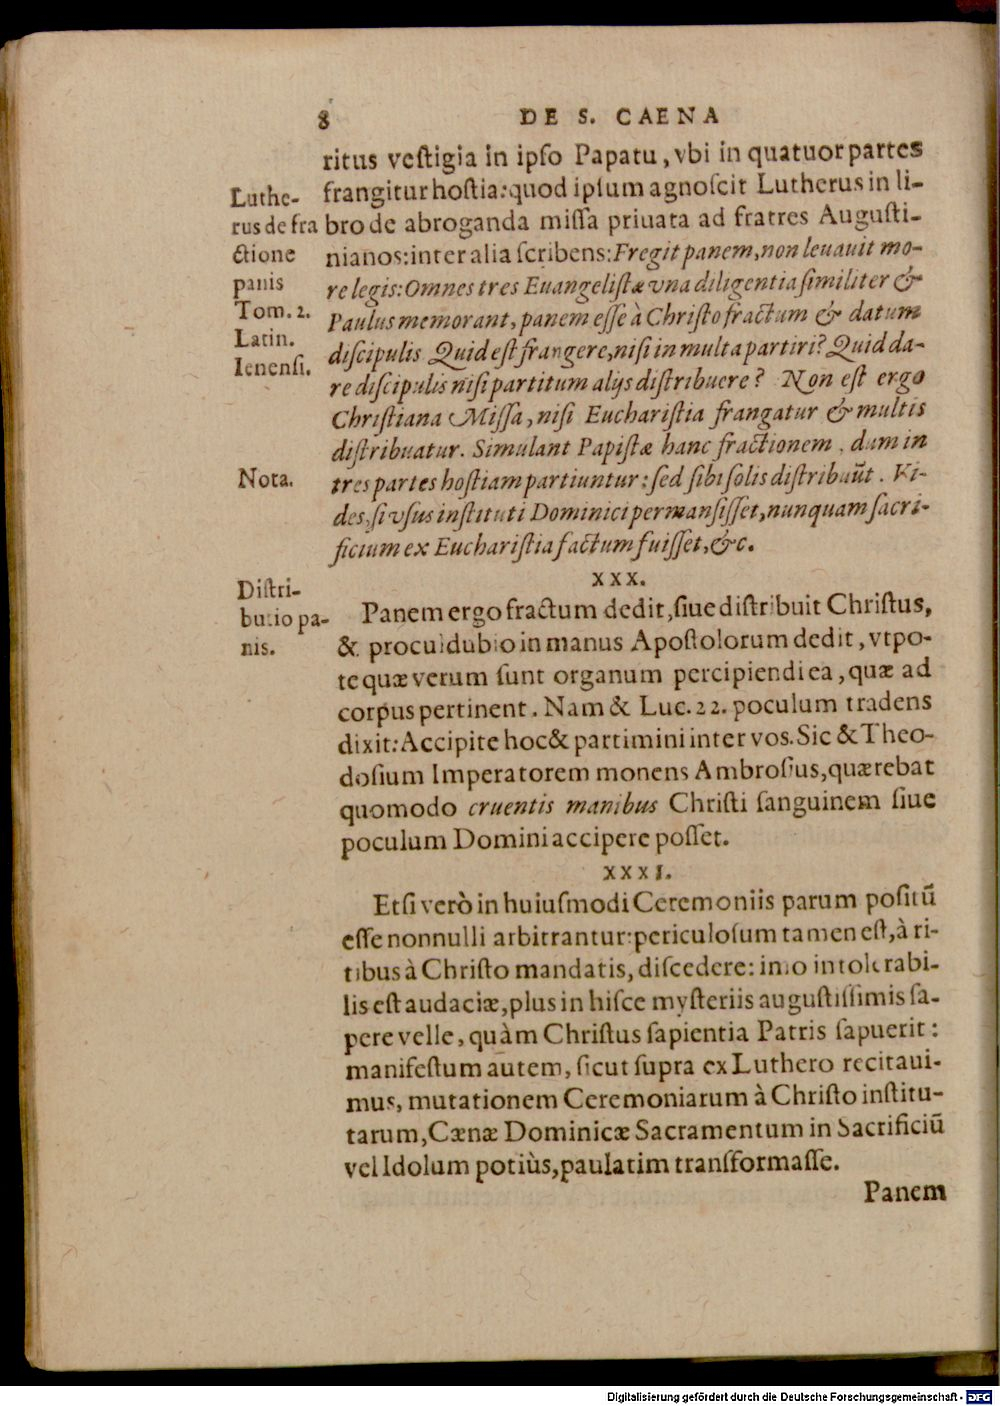 8 DE S. CAENA
ritus veſtigia in ipſo Papatu, vbi in quatuor partes
frangitur hoſtia: quod ipſum agnoſcit Lutherus in li-
bro de abroganda miſſa priuata ad fratres Auguſti-
nianos: inter alia ſcribens: Fregit panem, non leuauit mo-
re legis: Omnes tres Euangeliſtæ vna diligentia ſimiliter &
Paulus memorant, panem eſſe à Chriſto fractum & datum
diſcipulis Quid eſt frangere, niſi in multa partiri? Quid da-
re diſcipulis niſi partitum alijs diſtribuere? Non eſt ergo
Chriſtiana Miſſa, niſi Euchariſtia frangatur & multis
diſtribuatur. Simulant Papiſtæ hanc fractionem, dum in
tres partes hoſtiam partiuntur: ſed ſibi ſolis diſtribuūt. Vi-
des, ſi vſus inſtituti Dominici permanſiſſet, nunquam ſacri-
ficium ex Euchariſtia factum fuiſſet, &c.
Luthe-
rus de fra
ctione
panis
Tom. 2.
Latin.
Ienenſi.
Nota.
XXX.
Panem ergo fractum dedit, ſiue diſtribuit Chriſtus,
& procul dubio in manus Apoſtolorum dedit, vtpo-
te quæ verum ſunt organum percipiendi ea, quæ ad
corpus pertinent. Nam & Luc. 22. poculum tradens
dixit: Accipite hoc & partimini inter vos. Sic & Theo-
doſium Imperatorem monens Ambroſius, quærebat
quomodo cruentis manibus Chriſti ſanguinem ſiue
poculum Domini accipere poſſet.
Diſtri-
butio pa-
nis.
XXXI.
Etſi verò in huiuſmodi Ceremoniis parum poſitū
eſſe nonnulli arbitrantur: periculoſum tamen eſt, à ri-
tibus à Chriſto mandatis, diſcedere: imo intolerabi-
lis eſt audaciæ, plus in hiſce myſteriis auguſtiſſimis ſa-
pere velle, quàm Chriſtus ſapientia Patris ſapuerit:
manifeſtum autem, ſicut ſupra ex Luthero recitaui-
mus, mutationem Ceremoniarum à Chriſto inſtitu-
tarum, Cænæ Dominicæ Sacramentum in Sacrificiū
vel Idolum potiùs, paulatim transformaſſe.
Panem
Digitalisierung gefördert durch die Deutsche Forschungsgemeinschaft - DFG